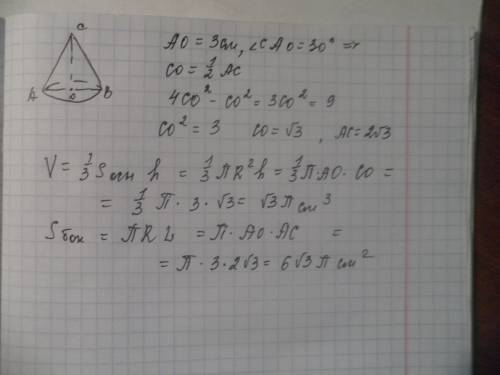 C
A O B
AO = 3см, ∠CAO = 30° ⇒
CO = 1/2 AC
4CO² - CO² = 3CO² = 9
CO² = 3 CO = √3 , AC = 2√3
V = 1/3 Sосн h = 1/3 ПR²h = 1/3 П·AO·CO =
= 1/3 П · 3 · √3 = √3 П см³
Sбок = ПRL = П · AO · AC =
= П · 3 · 2√3 = 6√3 П см²